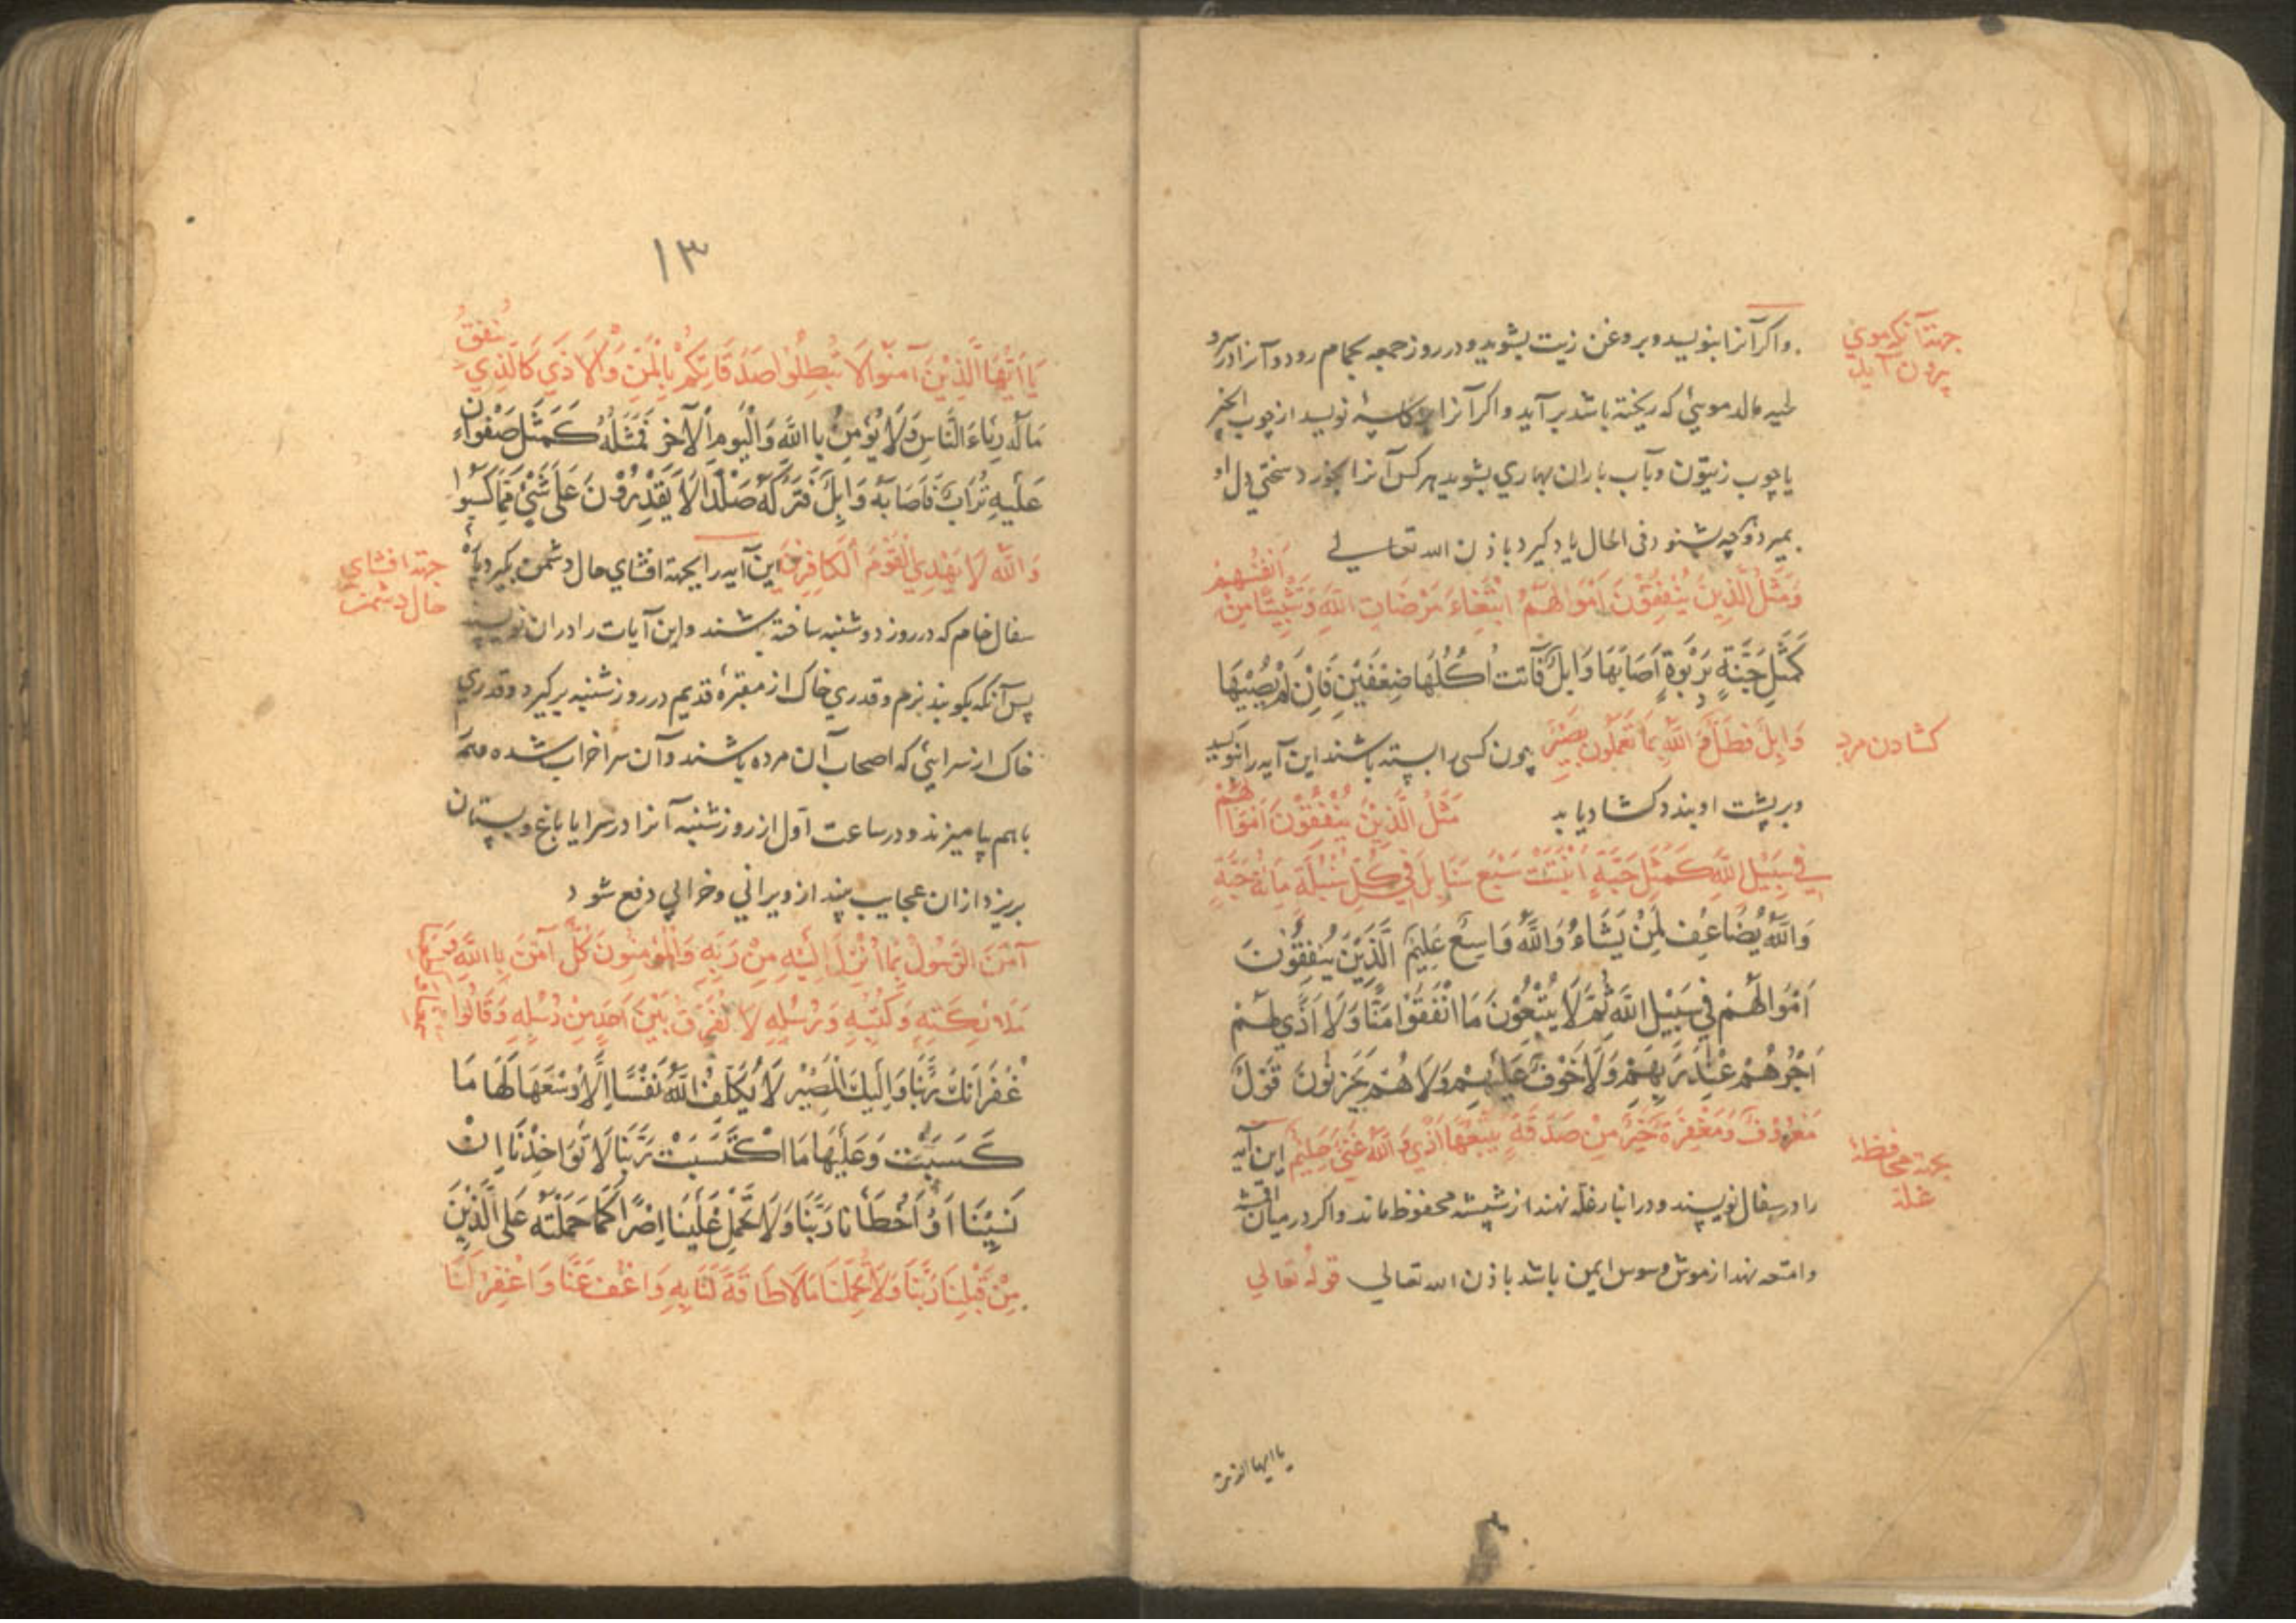 جهته آنکه موی
برون آید
واکر آنرا بنویسد و بروغن زیت بشوید و در روز جمعه بحمام رود و آنرا در سر و
مالد مویی که ریخته باشد بر آید واکر آنرا بر کاسهٔ نویسد از چوب انجیر
یا چوب زیتون و بآب باران بهاری بشوید هر کس آنرا بخورد سختی دل او
بمیرد و هرچه بشنود فی الحال یاد کیرد باذن الله تعالی
وَمَثَلُ الَّذِينَ يُنْفِقُونَ اَمْوَالَهُمُ ابْتِغَاءَ مَرْضَاتِ اللهِ وَتَثْبِيتًا مِنْ اَنْفُسِهِمْ
كَمَثَلِ جَنَّةٍ بِرَبْوَةٍ اَصَابَهَا وَابِلٌ فَآتَت اُكُلَهَا ضِعْفَيْنِ فَاِنْ لَمْ يُصِبْهَا
کشادن مرد
وَابِلٌ فَطَلٌّ وَ اللهُ بِمَا تَعْمَلُونَ بَصِيرٌ چون کسی را بسته باشند این آیه را نویسد
و بر پشت او بندد کشاد یابد مَثَلُ الَّذِينَ يُنْفِقُونَ اَمْوَالَهُمْ
فِي سَبِيلِ اللّٰهِ كَمَثَلِ حَبَّةٍ اَنْبَتَتْ سَبْعَ سَنَابِلَ فِي كُلِّ سُنْبُلَةٍ مِائَةُ حَبَّةٍ
وَاللّٰهُ يُضَاعِف لِمَنْ يَشَاءُ وَاللّٰهُ وَاسِعٌ عَلِيمٌ الَّذِينَ يُنْفِقُونَ
اَمْوَالَهُمْ فِي سَبِيلِ اللهِ ثُمَّ لَا يُتْبِعُونَ مَا اَنْفَقُوْا مَنًّا وَلَا اَذًي لَهُمْ
اَجْرُهُمْ عِنْدَ رَبِّهِمْ وَلَا خَوْفٌ عَلَيْهِمْ وَلَا هُمْ يَحْزَنُونَ قَوْلٌ
مَعْرُوفٌ وَمَغْفِرَةٌ خَيْرٌ مِنْ صَدَقَةٍ يَتْبَعُهَا اَذًي وَ اللّٰهُ غَنِيٌّ حَلِيمٌ این آیه
بجهته محافظهٔ
غله
را در سفال نویسند و در انبار غله نهند از شپشه محفوظ ماند واکر در میان اقمشه
و امتعه نهند از موش و سوس ایمن باشد باذن الله تعالی قوله تعالي
یا ایها الذین
١٣
يَا اَيُّهَا الَّذِينَ آمَنُوا لَا تُبْطِلُوا صَدَقَاتِكُمْ بِالْمَنِّ وَالْاَذَي كَالَّذِي يُنْفِقُ
مَالَهُ رِئَاءَ النَّاسِ وَلَا يُؤْمِنُ بِاللهِ وَالْيَوْمِ الْآخِرِ فَمَثَلُهُ كَمَثَلِ صَفْوَانٍ
عَلَيْهِ تُرَابٌ فَاَصَابَهُ وَابِلٌ فَتَرَكَهُ صَلْدًا لَا يَقْدِرُوْنَ عَلَى شَيْئٍ مِمَّا كَسَبُوا
وَاللّٰهُ لَا يَهْدِي الْقَوْمَ الْكَافِرِينَ این آیه را بجهته افشای حال دشمن بکیرد پارهٔ
جهته افشای
حال دشمن
سفال خام که در روز دوشنبه ساخته باشند و این آیات را در ان نویسند
پس آنکه بکوبند نرم و قدری خاک از مقبرهٔ قدیم در روز شنبه برکیرد و قدری
خاک از سرایی که اصحاب آن مرده باشند و آن سرا خراب شده همه
باهم بیامیزند و در ساعت اول از روز شنبه آنرا در سرا یا باغ و بستان
بریزد از ان عجایب بیند از ویرانی و خرابی دفع شود
آمَنَ الرَّسُولُ بِمَا اُنْزِلَ اِلَيْهِ مِنْ رَبِّهِ وَالْمُؤْمِنُونَ كُلٌّ آمَنَ بِاللَّهِ وَ
مَلَائِكَتِهِ وَكُتُبِهِ وَرُسُلِهِ لَا نُفَرِّقُ بَيْنَ اَحَدٍ مِنْ رُسُلِهِ وَقَالُوا سَمِعْنَا وَاَطَعْنَا
غُفْرَانَكَ رَبَّنَا وَاِلَيْكَ الْمَصِيرُ لَا يُكَلِّفُ اللّٰهُ نَفْسًا اِلَّا وُسْعَهَا لَهَا مَا
كَسَبَتْ وَعَلَيْهَا مَا اكْتَسَبَتْ رَبَّنَا لَا تُوَاخِذْنَا اِنْ
نَسِيْنَا اَوْ اَخْطَأْنَا رَبَّنَا وَلَا تَحْمِلْ عَلَيْنَا اِصْرًا كَمَا حَمَلْتَهُ عَلَى الَّذِينَ
مِنْ قَبْلِنَا رَبَّنَا وَلَا تُحَمِّلْنَا مَا لَا طَاقَةَ لَنَا بِهِ وَاعْفُ عَنَّا وَاغْفِرْ لَنَا